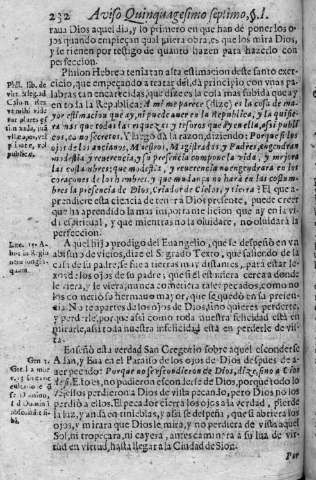 232 Aviso Quinquagesimo septimo, §. I.
raua Dios aquel dia, y lo primero en que han de poner los o-
jos quando empieçan qualquiera obra, es que los mira Dios,
y le tienen por testigo de quanto hazen para hazerlo con
perfeccion.
Philon Hebreo tenia tan alta estimacion deste santo exer-
cicio, que empeçando a tratar del, da principio con vnas pa-
labras tan encarecidas, que dize es la cosa mas subida que ay
en toda la Republica: A mi me parece (dize) es la cosa de ma-
yor estimacion que ay, ni puede auer en la Republica, y la quisie-
ra mas que todas las riquezas y tesoros que ay en ella, assi publi-
cos, como secretos. Y luego da la razon, diziendo: Porque si los
ojos de los ancianos, Maestros, Magistrados y Padres, engendran
modestia y reuerencia, y su presencia compone la vida, y mejora
las costumbres; que modestia, y reuerencia no engendrarà en los
coraçones de los hombres, y que mudança no harà en las costum-
bres la presencia de Dios, Criador de Cielos, y tierra? El que a-
prendiere esta ciencia de tener a Dios presente, puede creer
que ha aprendido la mas importante licion que ay en la vi-
da espiritual, y que mientras no la oluidare, no oluidarà la
perfeccion.
A quel hijo prodigo del Euangelio, que se despeñò en vn
abismo de vicios, dize el Sagrado Texto, que saliendo de la
casa de su padre, se fue a tierras muy distantes, para estar le-
xos de los ojos de su padre; que si el estuuiera cerca a donde
le viera, y le viera, nunca cometiera tales pecados, como no
los cometiò su hermano mayor, que se quedò en su presen-
cia. No te apartes de los ojos de Dios, si no quieres perderte,
y perderle, porque assi como toda nuestra felicidad està en
mirarle, assi toda nuestra infelicidad està en perderle de vis-
ta.
Enseñò esta verdad San Gregorio sobre aquel esconderse
Adan, y Eua en el Paraiso de los ojos de Dios despues de a-
uer pecado: Porque no se escondieron de Dios, dize, sino a Dios
de si. Esto es, no pudieron esconderse de Dios, porque todo lo
ve; ellos perdieron a Dios de vista pecando, pero Dios no los
perdiò a ellos. El pecador cierra los ojos a la verdad, pierde
la luz, y anda en tinieblas, y assi se despeña, que si abriera los
ojos, y mirara que Dios le mira, y no perdiera de vista aquel
Sol, ni tropeçara, ni cayera, antes caminara a su luz de vir-
tud en virtud, hasta llegar a la Ciudad de Sion.
Por